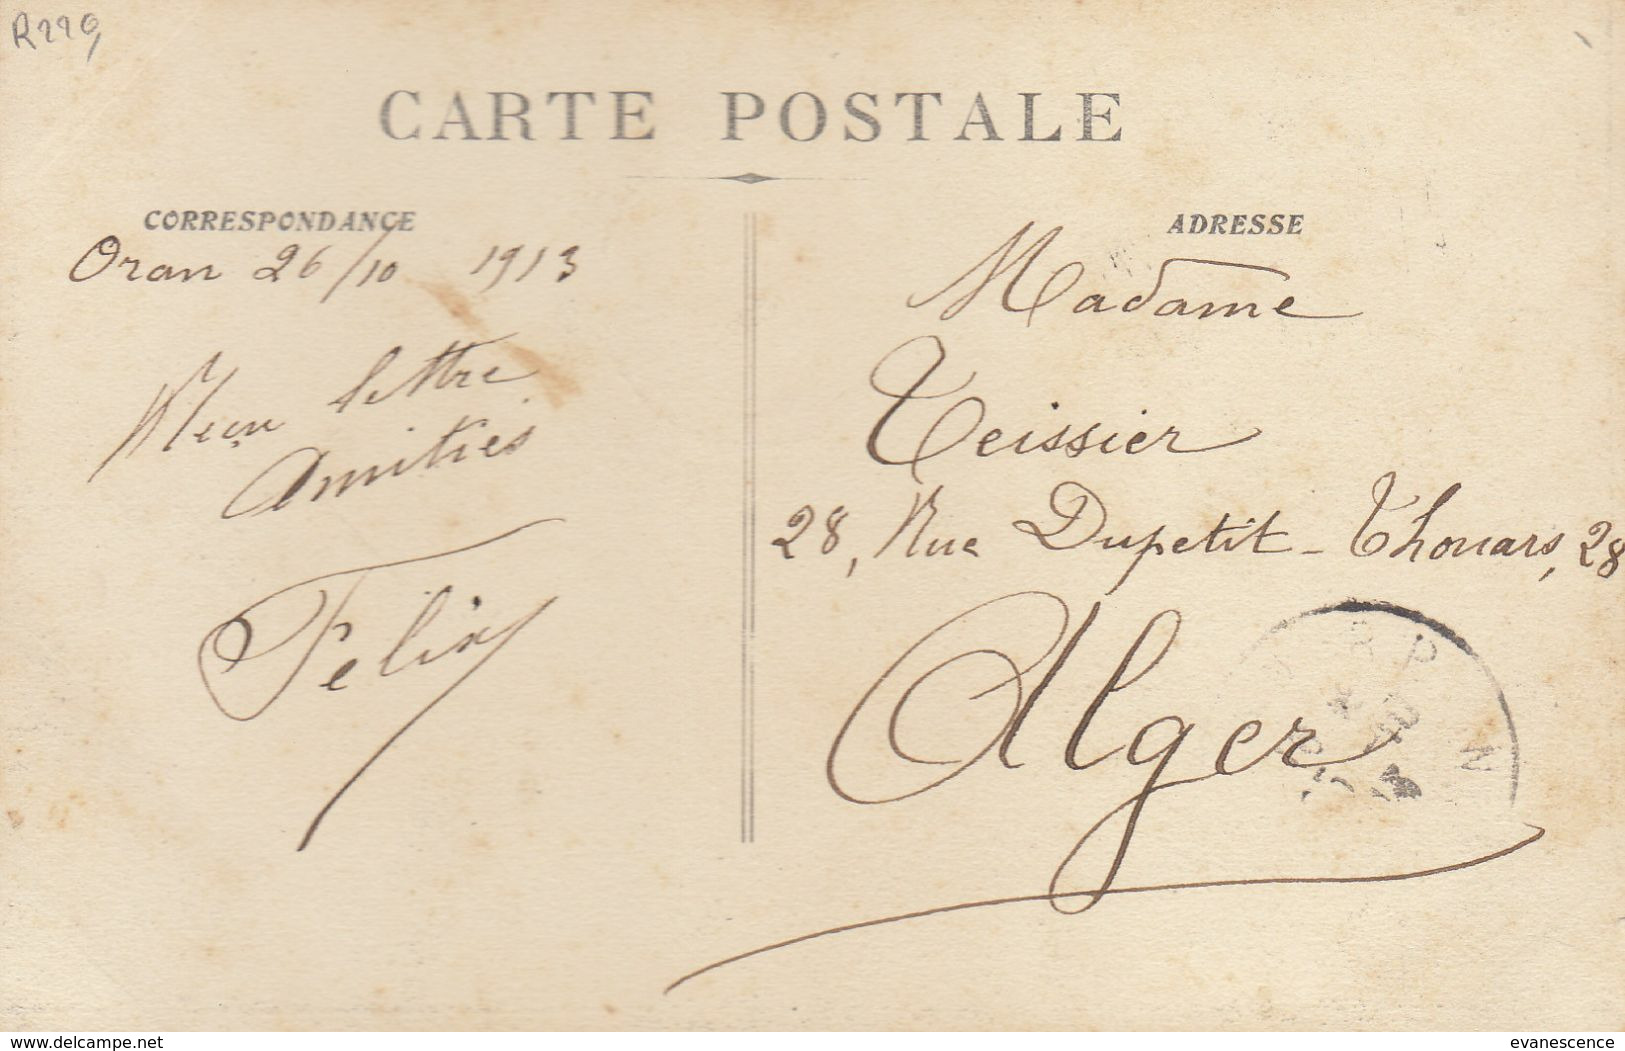 CARTE POSTALE
CORRESPONDANCE
Oran 26/10 1913
Reçu lettre
Amitiés
Felix
ADRESSE
Madame
Teissier
28, Rue Dupetit-Thouars, 28
Alger
www.delcampe.net
evanescence